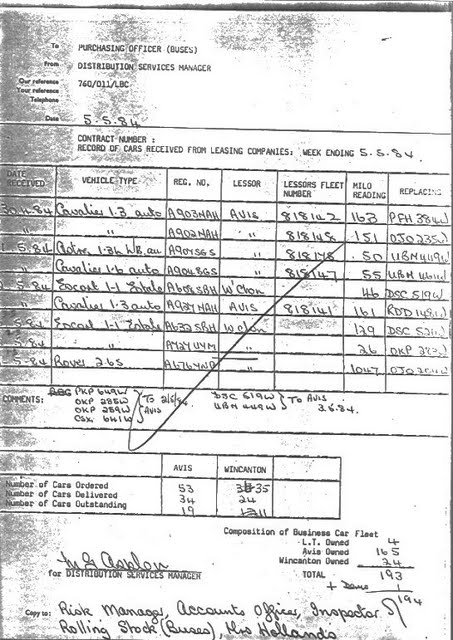 To PURCHASING OFFICER (BUSES)
From DISTRIBUTION SERVICES MANAGER
Our reference 760/011/LBC
Your reference
Telephone
Date 5.5.84
CONTRACT NUMBER :
RECORD OF CARS RECEIVED FROM LEASING COMPANIES: WEEK ENDING 5.5.84.
DATE RECEIVED VEHICLE TYPE REG. NO. LESSOR LESSORS FLEET NUMBER MILO READING REPLACING
.84 Cavalier 1.3 auto A903MAH AVIS 818142 163 PFH 384W
" A902MAH " 818148 151 OJO 235W
.5.84 1.3L H/B au. A904SGS " 50 UBM 449W
" Cavalier 1.6 auto A904BGS " 818147 55 UBM
.5.84 Escort 1.1 Estate W'Cton 46 DSC 519W
" Cavalier 1.3 auto A927MAH AVIS 818141 161 RDD 148W
5.84 Escort 1.1 Estate A632SBH W'cton 129 DSC 521W
5.84 " A727UYM " 26 OKP
5.84 Rover 2.6s " 1047 OJO
COMMENTS: PKP 649W To 2/5/84 DSC 519W To AVIS
OKP 285W AVIS UBM 449W 3.5.84.
OKP 289W
CSX 641W
AVIS WINCANTON
Number of Cars Ordered 53 35
Number of Cars Delivered 34 24
Number of Cars Outstanding 19 11
Composition of Business Car Fleet
L.T. Owned 4
Avis Owned 165
Wincanton Owned 24
TOTAL 193
+ Demo 1
194
for DISTRIBUTION SERVICES MANAGER
Copy to: Risk Manager, Accounts Officer, Inspector
Rolling Stock (Buses), Mrs Hollands